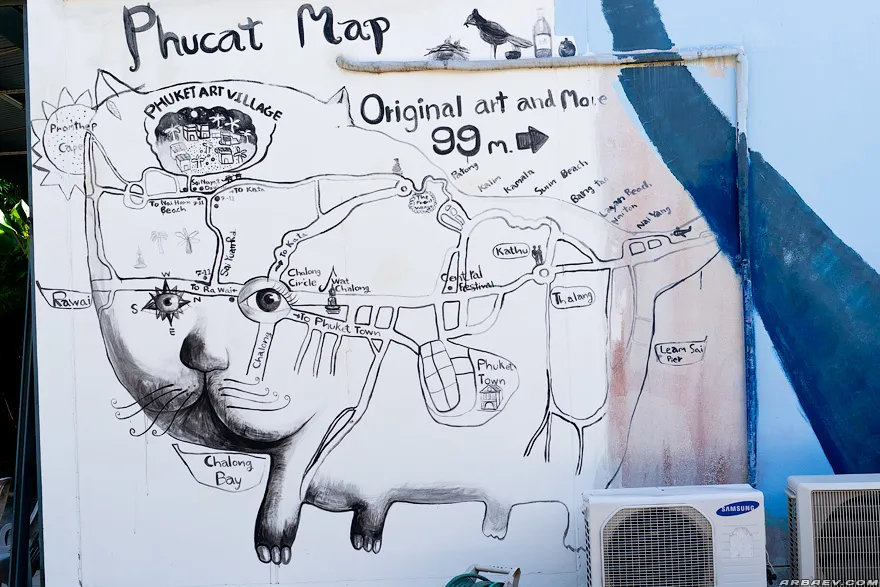 Phucat Map
PHUKET ART VILLAGE
Original art and More
99 m.
Promthep
Cape
Patong
Kalim
Kamala
Surin Beach
Bang tao
Layan Beach.
Naiton
Nai Yang
To Kata
To Nai Harn
Beach
7-11
Sai Yuan Rd.
To Kata
Kathu
Rawai
7-11
To Rawai
W
S
N
E
Chalong
Circle
Wat
Chalong
Central
Festival
Thalang
To Phuket Town
Chalong
Phuket
Town
Leam Sai
Pier
Chalong
Bay
SAMSUNG
ARBAEV.COM